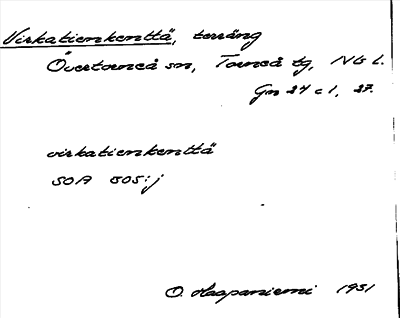 Virkatienkenttä, terräng
Övertorneå sn, Torneå tg, Nb l.
Gm 24 c 1, 27.
virkatienkenttä
SOA 505:j
O. Haapaniemi 1931